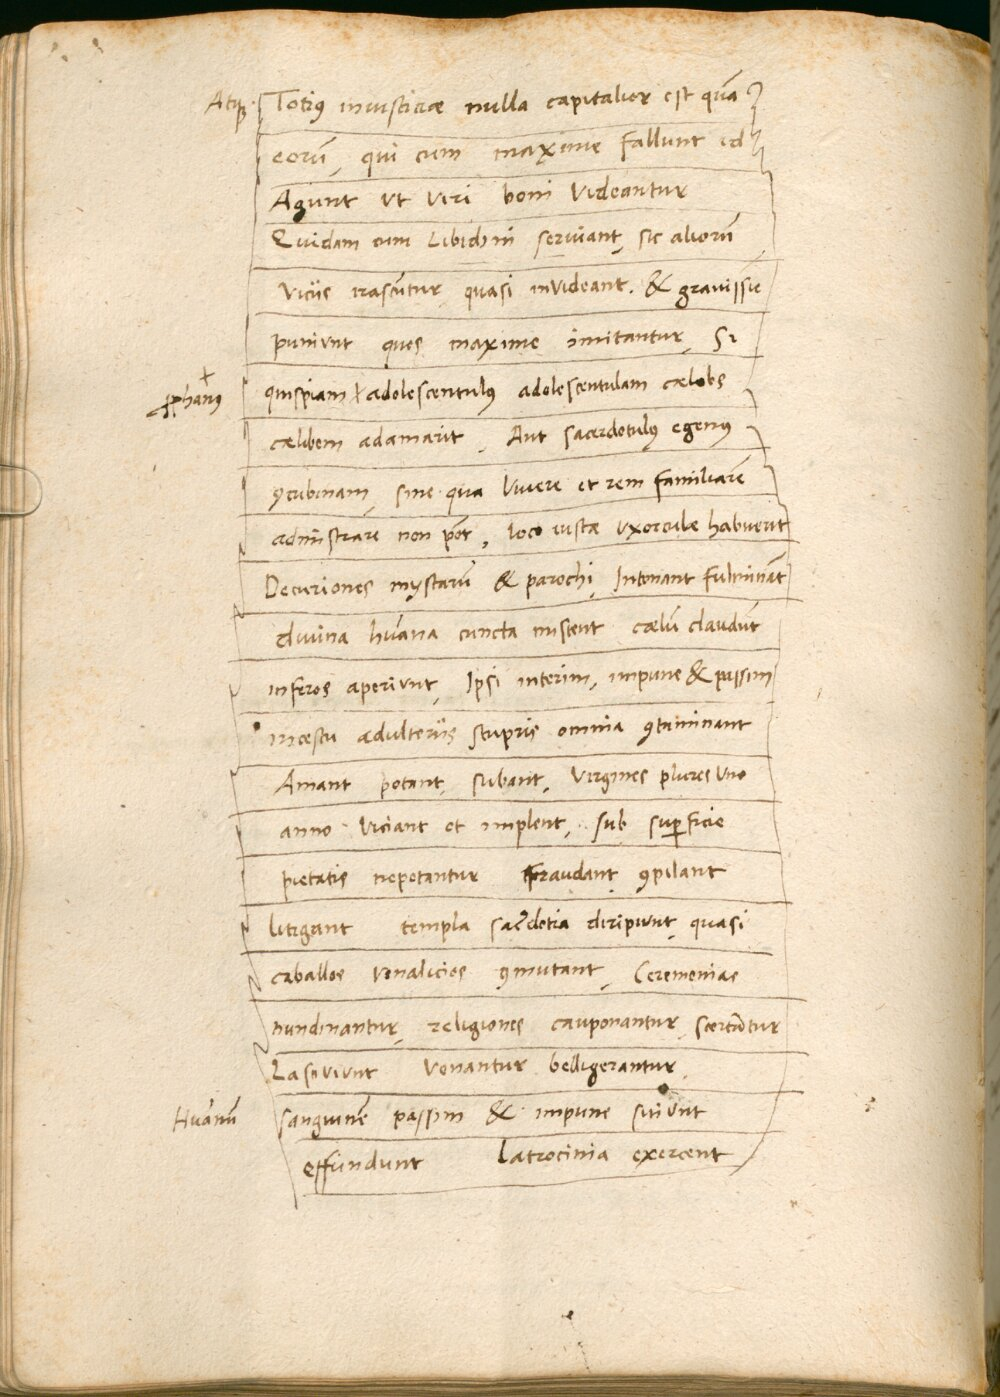 Atqꝫ Totiꝰ iniusticiæ nulla capitalior est quā
eorū, qui cum maxime fallunt id
Agunt ut viri boni videantur
Quidam cum Libidini seruiant, sic aliorū
viciis irascūtur, quasi invideant. & grauissīe
puniunt ques maxime imitantur, Si
ꝓphanꝰ quispiam adolescentulꝰ adolescentulam cælebs
cælibem adamarit, Aut sacerdotulꝰ egenꝰ
ꝯcubinam, sine qua viuere et rem familiarē
adminstrare non pōt, loco iustæ vxorculæ habuerit
Decuriones mystarū & parochi, Intonant fulminānt
diuina huāna cuncta mistent cælū claudūt
inferos aperiunt, Ipsi interim, impune & passim
incæstu adulteriis stupris omnia ꝯtaminant
Amant potant, subant, virgines plures vno
anno viciant et implent, sub suꝑficie
pietatis nepotantur fraudant ꝯpilant
litigant templa sac̄dotia diripiunt, quasi
caballos venalicios ꝯmutant, Ceremonias
nundinantur, religiones cauponantur, scortātur
Lasciviunt venantur belligerantur,
Huānū sanguinē passim & impune sitiunt
effundunt Latrocinia exercent